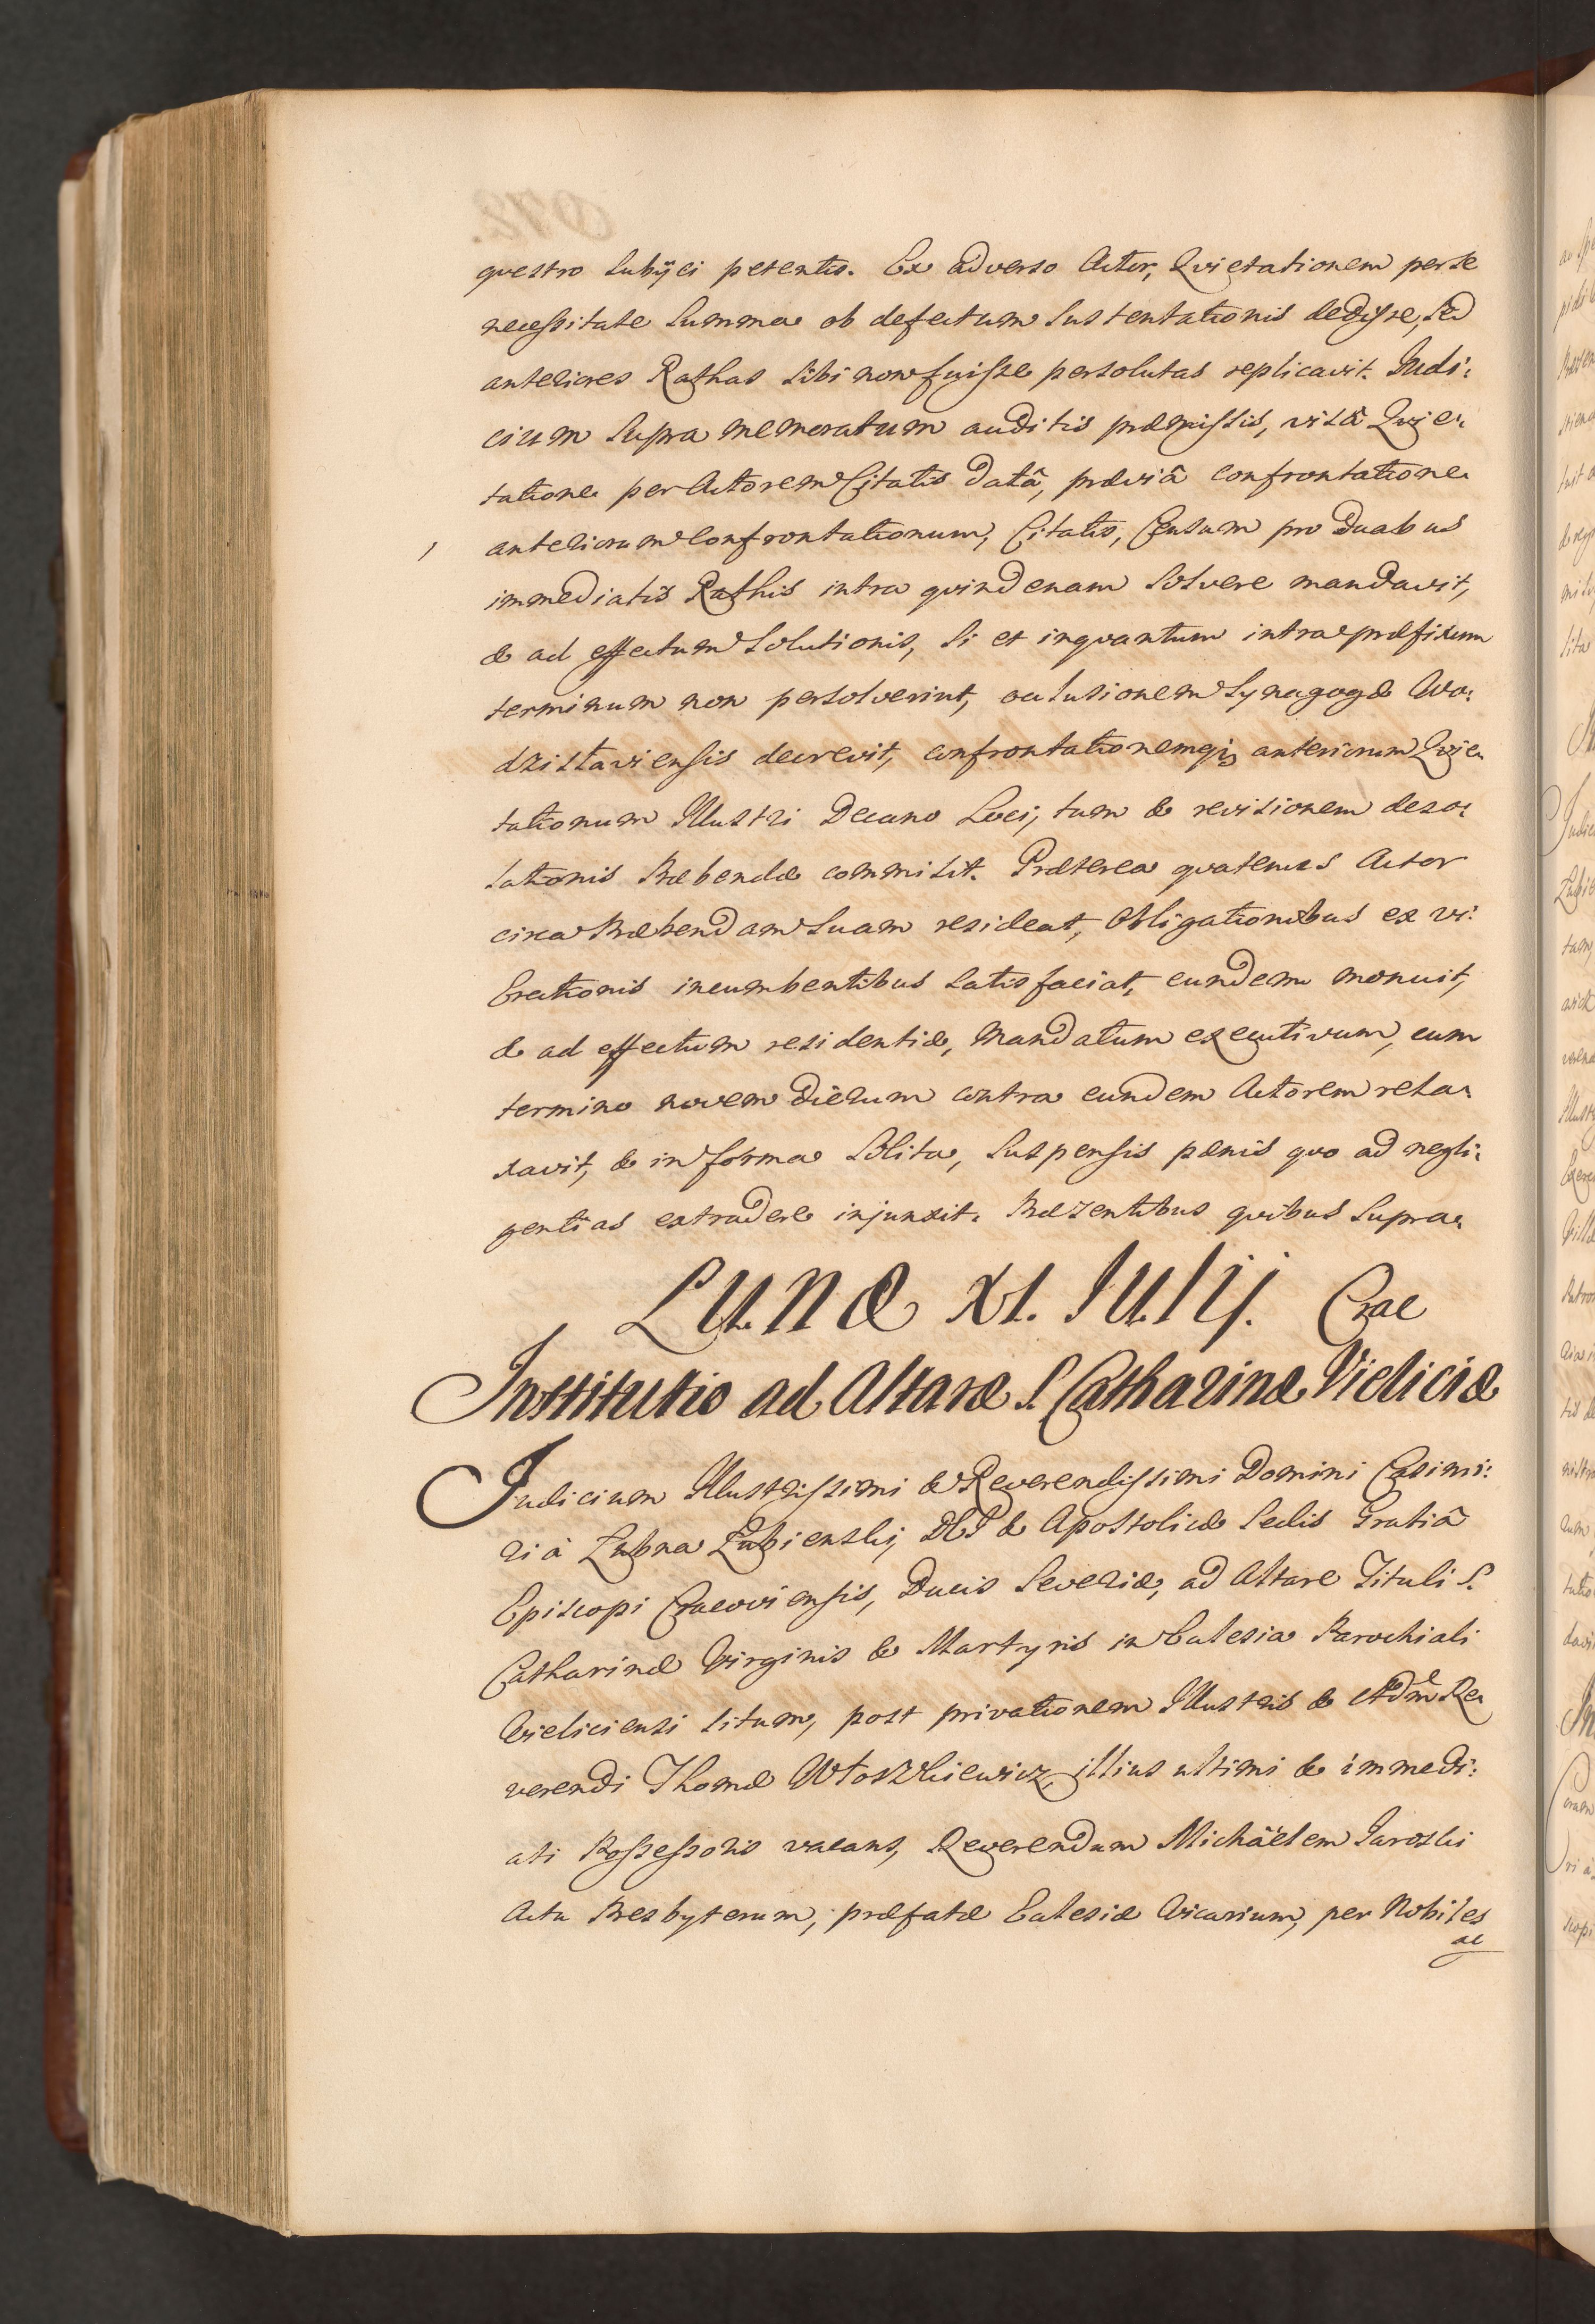 questro Subijci petentis. Ex adverso Actor, Qvietationem per se
necessitate Summa ob defectum Sustentationis dedisse, Sed
anteriores Rathas Sibi non fuisse persolutas replicavit. Judi:
cium Supra memoratum auditis præmissis, visâ Qvie:
tatione per Actorem Citatis datâ, præviâ confrontatione
anteriorum Confrontationum, Citatis, Censum pro Duabus
immediatis Rathis intra qvindenam Solvere mandavit,
& ad effectum Solutionis, Si et inqvantum intra præfixum
terminum non persolverint, occlusionem Synagogæ Wo:
dzisłaviensis decrevit, confrontationemq; anteriorum Qvie
tationum Illustri Decano Loci, tum & revisionem deso:
lationis Præbendæ commisit. Præterea qvatenus Actor
circa Præbendam Suam resideat, Obligationibus ex vi
Erectionis incumbentibus Satisfaciat, eundem monuit,
& ad effectum residentiæ, Mandatum executivum, cum
termino novem Dierum contra eundem Actorem rela:
xavit, & in forma Solita, Suspensis pænis qvo ad negli:
gentias extradere injunxit. Præzentibus qvibus Supra.
Lunæ XI. Julij. Crac
Institutio ad Altare S. Catharinæ Vieliciæ
Judicium Illustrissimi & Reverendissimi Domini Casimi:
ri à Łubna Łubienski, DEI & Apostolicæ Sedis Gratiâ
Episcopi Cracoviensis, Ducis Severiæ, ad Altare Tituli S.
Catharinæ Virginis & Martyris in Ecclesia Parochiali
Vieliciensi Situm, post privationem Illustris & Adm Re
verendi Thomæ Włoszkiewicz, illius ultimi & immedi:
ati Possessoris vacans, Reverendum Michäelem Jaroski
Actu Presbyterum, præfatæ Ecclesiæ Vicarium, per Nobiles
ac